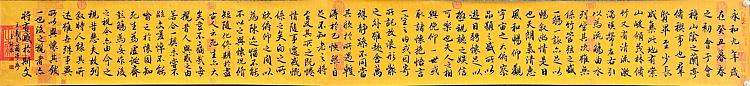 永和九年歲
在癸丑暮春
之初會于會
稽山陰之蘭亭
脩禊事也羣
賢畢至少長
咸集此地有崇
山峻領茂林脩
竹又有清流激
湍暎帶左右引
以為流觴曲水
列坐其次雖無
絲竹管弦之盛
一觴一詠亦足以
暢敘幽情是日
也天朗氣清惠
風和暢仰觀
宇宙之大俯察
品類之盛所以
遊目騁懷足以
極視聽之娛信
可樂也夫人之相
與俯仰一世或
取諸懷抱悟言
一室之內或因寄
所託放浪形骸
之外雖趣舍萬
殊靜躁不同當
其欣於所遇暫
得於己快然自
足不知老之將
至及其所之既惓
情隨事遷感慨
係之矣向之所
欣俛仰之間以
為陳迹猶不能
不以之興懷況脩
短隨化終期於盡
古人云死生亦大
矣豈不痛哉每
攬昔人興感之由
若合一契未嘗不
臨文嗟悼不能
喻之於懷固知
一死生為虛誕齊
彭殤為妄作後
之視今亦由今之
視昔悲夫故列
敘時人錄其所
述雖世殊事異
所以興懷其致
一也後之攬者亦
將有感於斯文